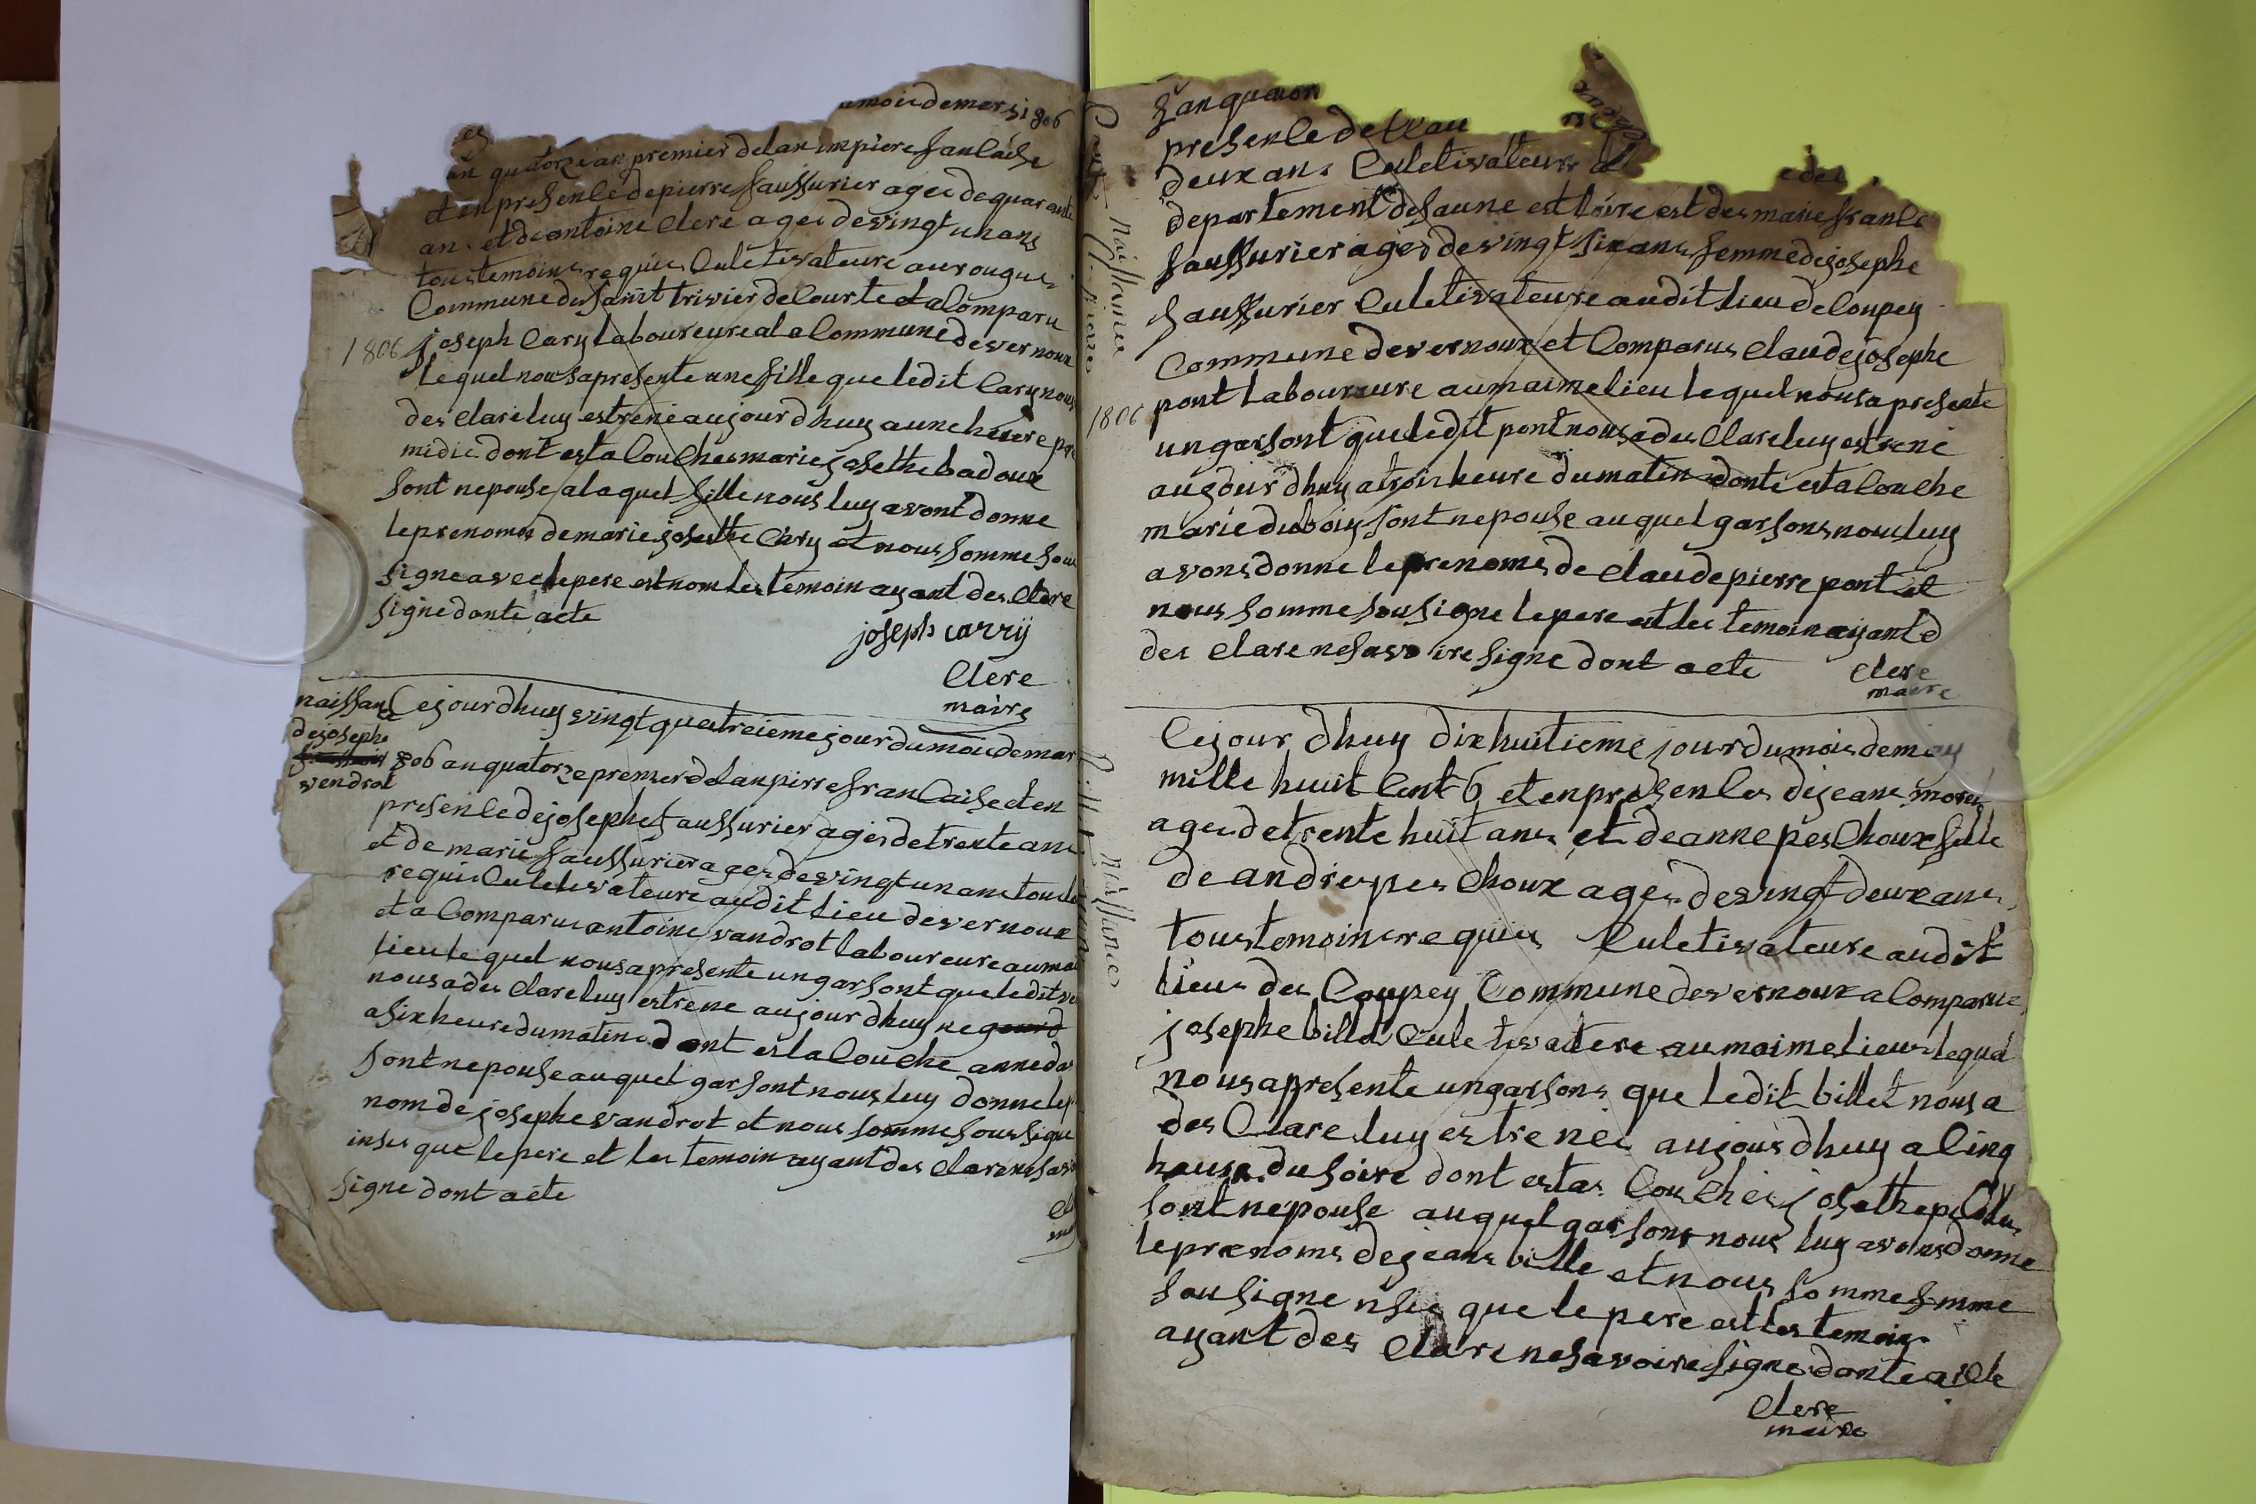 mois de mars 1806
an quatorze an premier delan impiere franCaise
et en presenCe de pierre faussurier agee de quarante
an. et de antoine Clere agee de vingt un ans
tous temoins requies Culetivateure au rougue
Commune de saint trivier de Courte et a Comparu
1806 joseph Cary laboureure a la Commune de vernoux
le quel nous a presente une fille que le dit Cary nous
des Clare luy estre ne aujour dhuy a une heure pre
midie dont est a Couchee marie josethe badoux
sont nepouse a la quel fille nous luy avont donne
le prenoms de marie josethe Cary et nous somme sou
signe avec le pere est nom les temoin ayant des Clare
signe donte acte
joseph carrÿ
Clere
maire
naissance de josephe vendrot
Ce jour dhuy vingt quatreieme jour du moi de mar
806 an quatorze premier delanpirre franCaise et en
presenCe de josephe faussurier agee de trente ans
et de marie faussurier agee de vingt un ans tous te
requis Culetivateure au dit lieu de vernoux
et a Comparue antoine vandrot laboureure au mai
lieu le quel nous a presente un garsont que le dit va
nous a des Clare luy estre ne aujour dhuy
a six heure du matine dont est a Couche anne
sont nepouse au quel garsont nous luy donne le p
nom de josephe vandrot et nous somme sous signe
inses que le pere et les temoin ayant des Clare ne sav
signe dont acte
Naissance
fanquaron
presenle de
deux ans Culetivateure
departement de saune est loire est des marie franCe
faussurier agee de vingt six ans femme de josephe
faussurier Culetivateure au dit lieu de Coupey
Commune de vernoux et Comparus Claude josephe
1806 pont laboureure au maime lieu le quel nous a presente
un garsont que le dit pont nous a des Clare luy estre ne
aujour dhuy a trois heure du matin donte est a Couche
marie duboiy sont nepouse au quel garsons nous luy
avons donne le prenoms de Claude pierre pont et
nous somme sousigne le pere est les temoin ayant
des Clare ne savoire signe dont acte
Clere
maire
naissance
Ce jour dhuy dix huitieme jour du mois de may
mille huit Cent 6 et en presenCes de jeans morel
agee de trente huit ans et de anne pes Choux fille
de andre pes Choux agee de vingt deux ans
tous temoins requies Culetivateure au dit
lieus des Coupey Commune de vernoux a Comparue
josephe billet Culetivateure au maime lieus le quel
nous a presente un garsons que le dit billet nous a
des Clare luy estre nee aujour dhuy a Cinq
heure du soire dont est as Couchee josethe
sont nepouse au quel garsons nous luy avons donne
le prenoms de jeans bille et nous somme somme
sousigne nses que le pere est les temoin
ayant des Clare ne savoire signe donte acte
Clere
maire